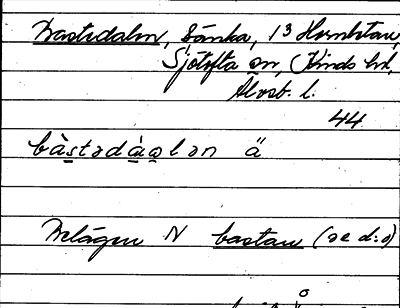 Bastedalen, Sänka, 13 Hornbetan,
Sjötofta sn, Kinds hd,
Älvsb. l.
44
bàstədàalən ä
Belägen N bastan (se d:o)